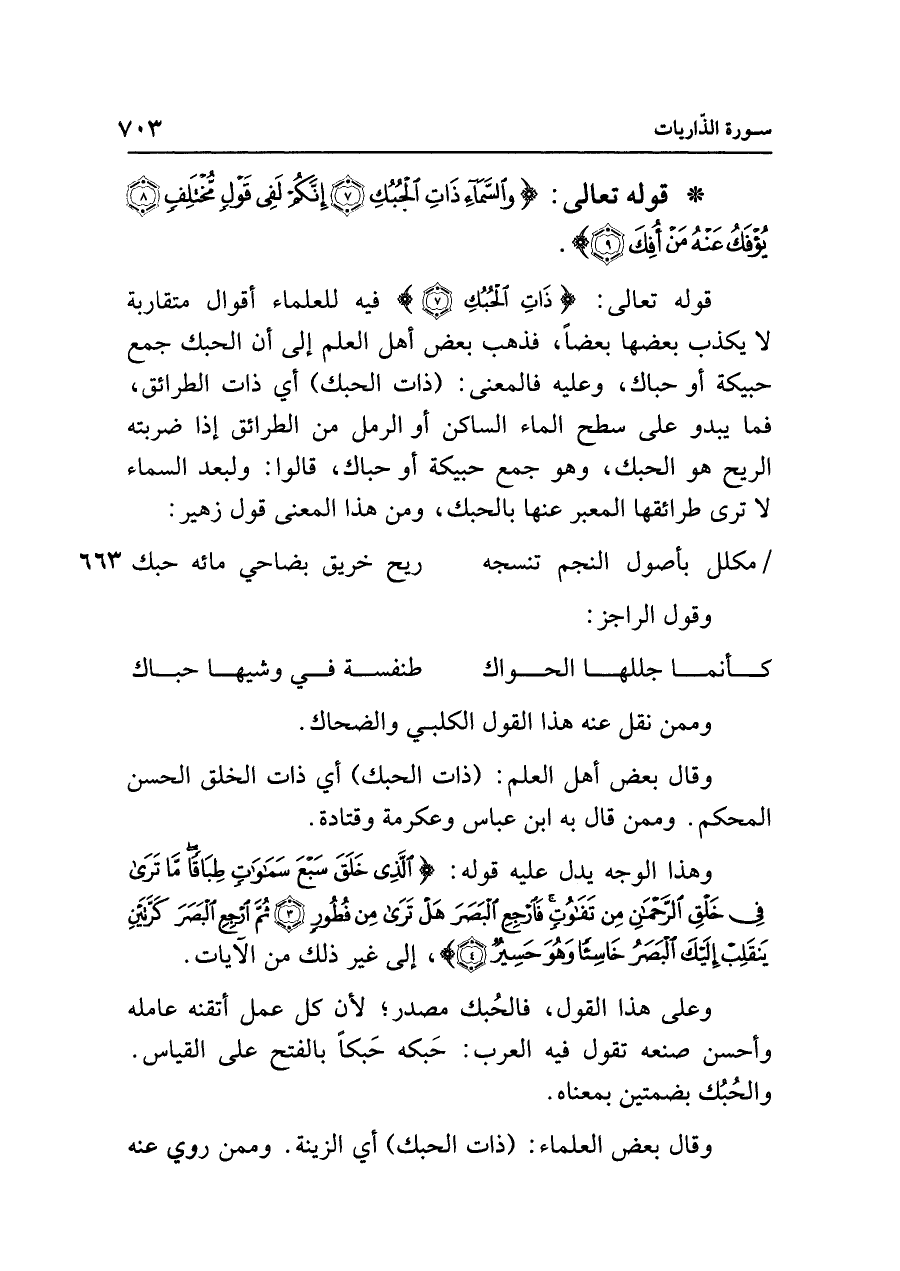 سورة الذّاريات ٧٠٣
* قوله تعالى: ﴿ وَٱلسَّمَآءِ ذَاتِ ٱلْحُبُكِ ۝٧ إِنَّكُمْ لَفِى قَوْلٍ مُّخْتَلِفٍ ۝٨
يُؤْفَكُ عَنْهُ مَنْ أُفِكَ ۝٩ ﴾ .
قوله تعالى: ﴿ ذَاتِ ٱلْحُبُكِ ۝٧ ﴾ فيه للعلماء أقوال متقاربة
لا يكذب بعضها بعضاً، فذهب بعض أهل العلم إلى أن الحبك جمع
حبيكة أو حباك، وعليه فالمعنى: (ذات الحبك) أي ذات الطرائق،
فما يبدو على سطح الماء الساكن أو الرمل من الطرائق إذا ضربته
الريح هو الحبك، وهو جمع حبيكة أو حباك، قالوا: ولبعد السماء
لا ترى طرائقها المعبر عنها بالحبك، ومن هذا المعنى قول زهير:
/ مكلل بأصول النجم تنسجه ريح خريق بضاحي مائه حبك ٦٦٣
وقول الراجز:
كأنما جللها الحواك طنفسة في وشيها حباك
وممن نقل عنه هذا القول الكلبي والضحاك.
وقال بعض أهل العلم: (ذات الحبك) أي ذات الخلق الحسن
المحكم. وممن قال به ابن عباس وعكرمة وقتادة.
وهذا الوجه يدل عليه قوله: ﴿ ٱلَّذِى خَلَقَ سَبْعَ سَمَٰوَٰتٍ طِبَاقًا ۖ مَّا تَرَىٰ
فِى خَلْقِ ٱلرَّحْمَٰنِ مِن تَفَٰوُتٍ ۖ فَٱرْجِعِ ٱلْبَصَرَ هَلْ تَرَىٰ مِن فُطُورٍ ۝٣ ثُمَّ ٱرْجِعِ ٱلْبَصَرَ كَرَّتَيْنِ
يَنقَلِبْ إِلَيْكَ ٱلْبَصَرُ خَاسِئًا وَهُوَ حَسِيرٌ ۝٤ ﴾، إلى غير ذلك من الآيات.
وعلى هذا القول، فالحُبك مصدر؛ لأن كل عمل أتقنه عامله
وأحسن صنعه تقول فيه العرب: حَبكه حَبكاً بالفتح على القياس.
والحُبُك بضمتين بمعناه.
وقال بعض العلماء: (ذات الحبك) أي الزينة. وممن روي عنه